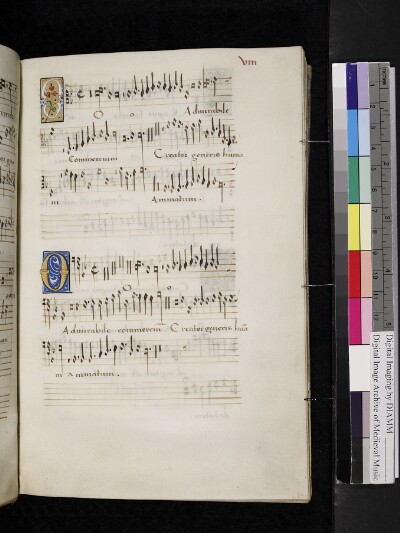 VIII
O o Admirabile
Commercium Creator generis huma
ni Animatum.
O o
Admirabile commerciu Creator generis hua
ni Animatum.
Digital Imaging by DIAMM
Digital Image Archive of Medieval Music